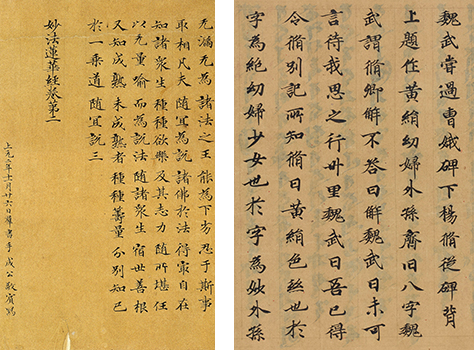 无漏无為諸法之王能為下劣忍于斯事
取相凡夫隨宜為說諸佛於法得最自在
知諸衆生種種欲樂及其志力隨所堪任
以无量喻而為說法隨諸衆生宿世善根
又知成熟未成熟者種種籌量分別知已
於一乗道隨宜說三
妙法蓮華經卷第二
上元三年十一月廿六日羣書手成公敬賓寫
魏武嘗過曹娥碑下楊脩從碑背
上題作黄絹幼婦外孫臼八字魏
武謂脩卿解不荅曰解魏武曰未可
言待我思之行卅里魏武曰吾已得
令脩別記所知脩曰黄絹色絲也於
字為絶幼婦少女也於字為妙外孫